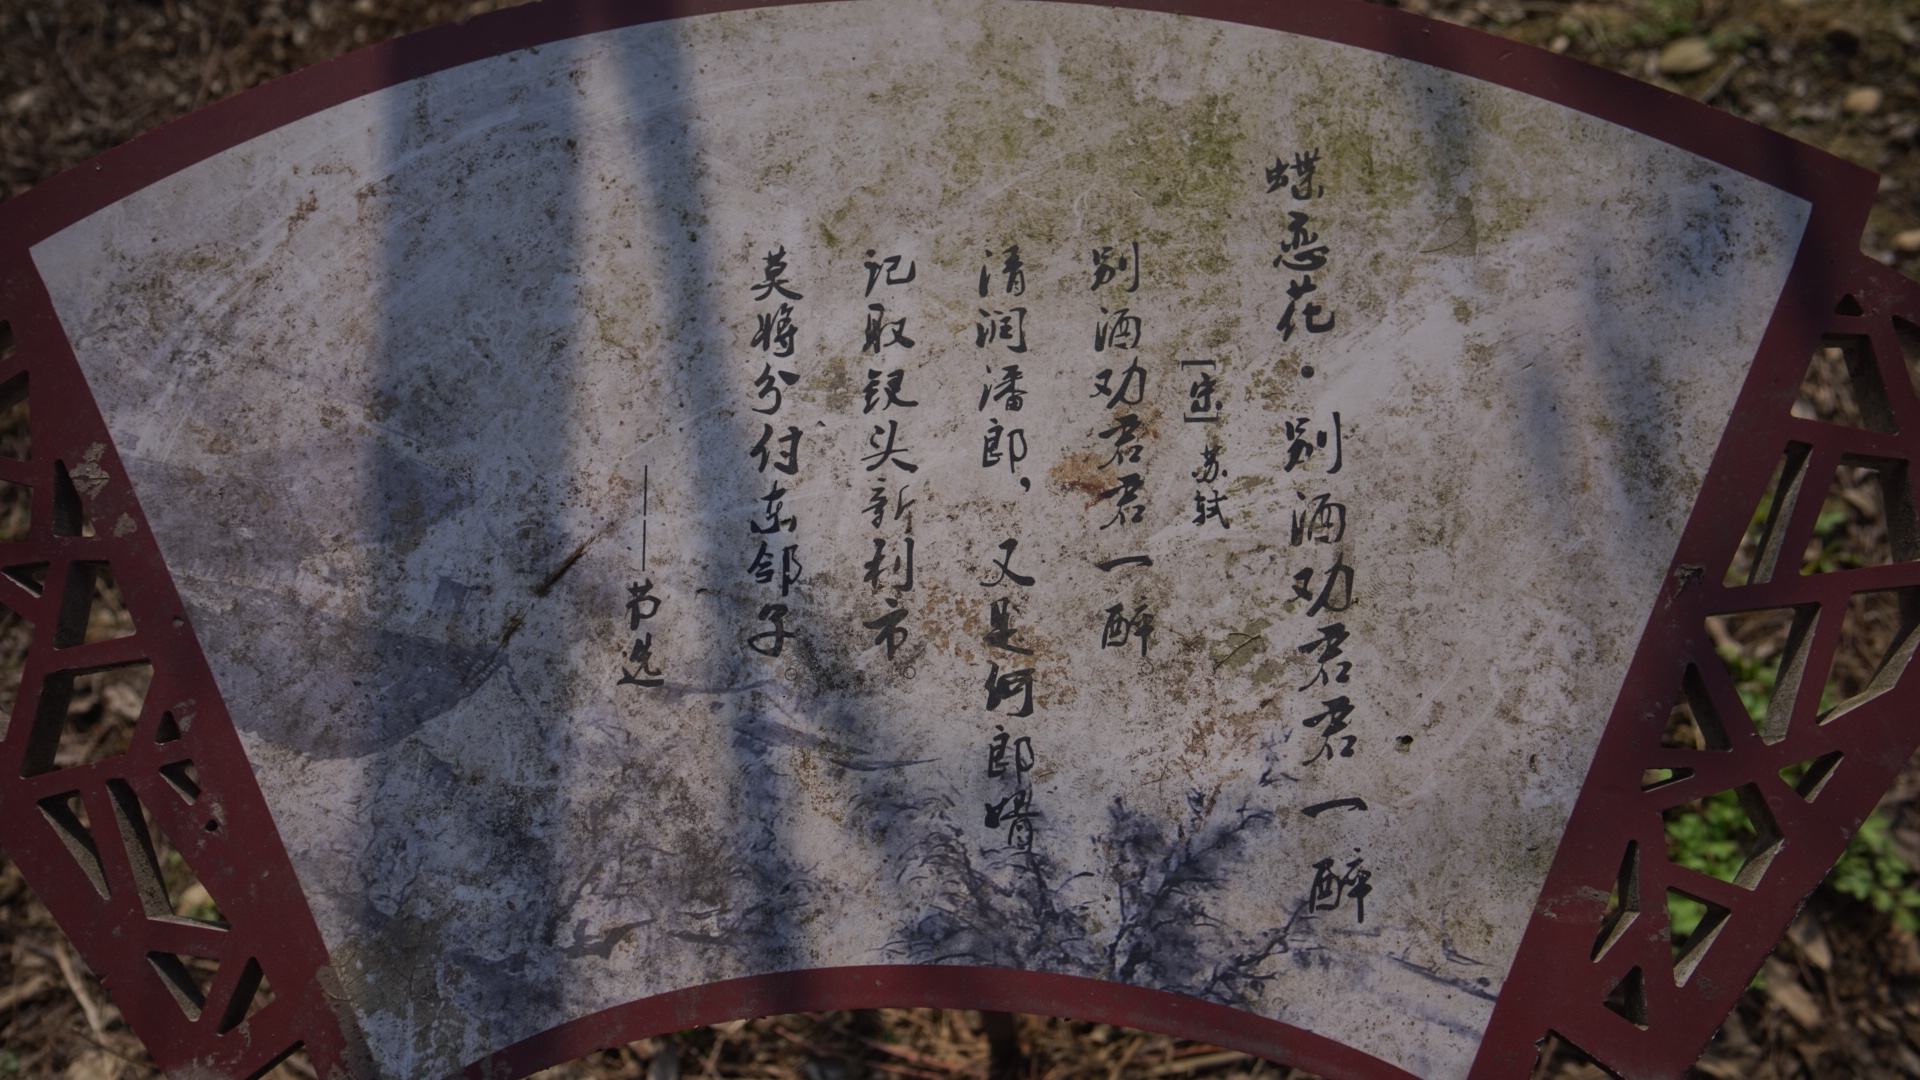 蝶恋花·别酒劝君君一醉
[宋] 苏轼
别酒劝君君一醉
清润潘郎，又是何郎婿
记取钗头新利市
莫将分付东邻子
——节选